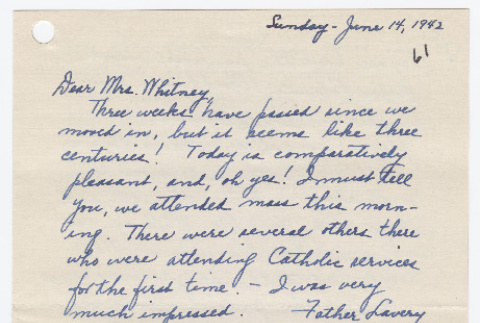 Sunday - June 14, 1942
61
Dear Mrs. Whitney,
Three weeks have passed since we
moved in, but it seems like three
centuries! Today is comparatively
pleasant, and, oh yes! I must tell
you, we attended mass this morn-
ing. There were several others there
who were attending Catholic services
for the first time. - I was very
much impressed. Father Lavery